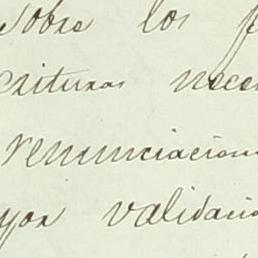 sobre los p
crituras nece
renunciacion
yor validacio